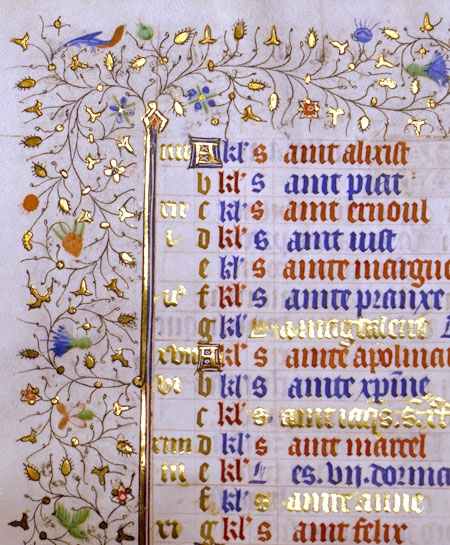 A kl' s aint alixist
b kl' s aint piat
c kl' s aint ernoul
i d kl' s aint iust
e kl' s ainte margue
f kl' s ainte pranxe
g kl' L a magdalene
xvii A kl' s ainte apolinai
vi b kl' s ainte xpine
c kl' s aint iaqs. s.
xiiii d kl' s aint marcel
iii e kl' L es. vij. dorma
f kl' s ainte anne
xi g kl' s aint felix